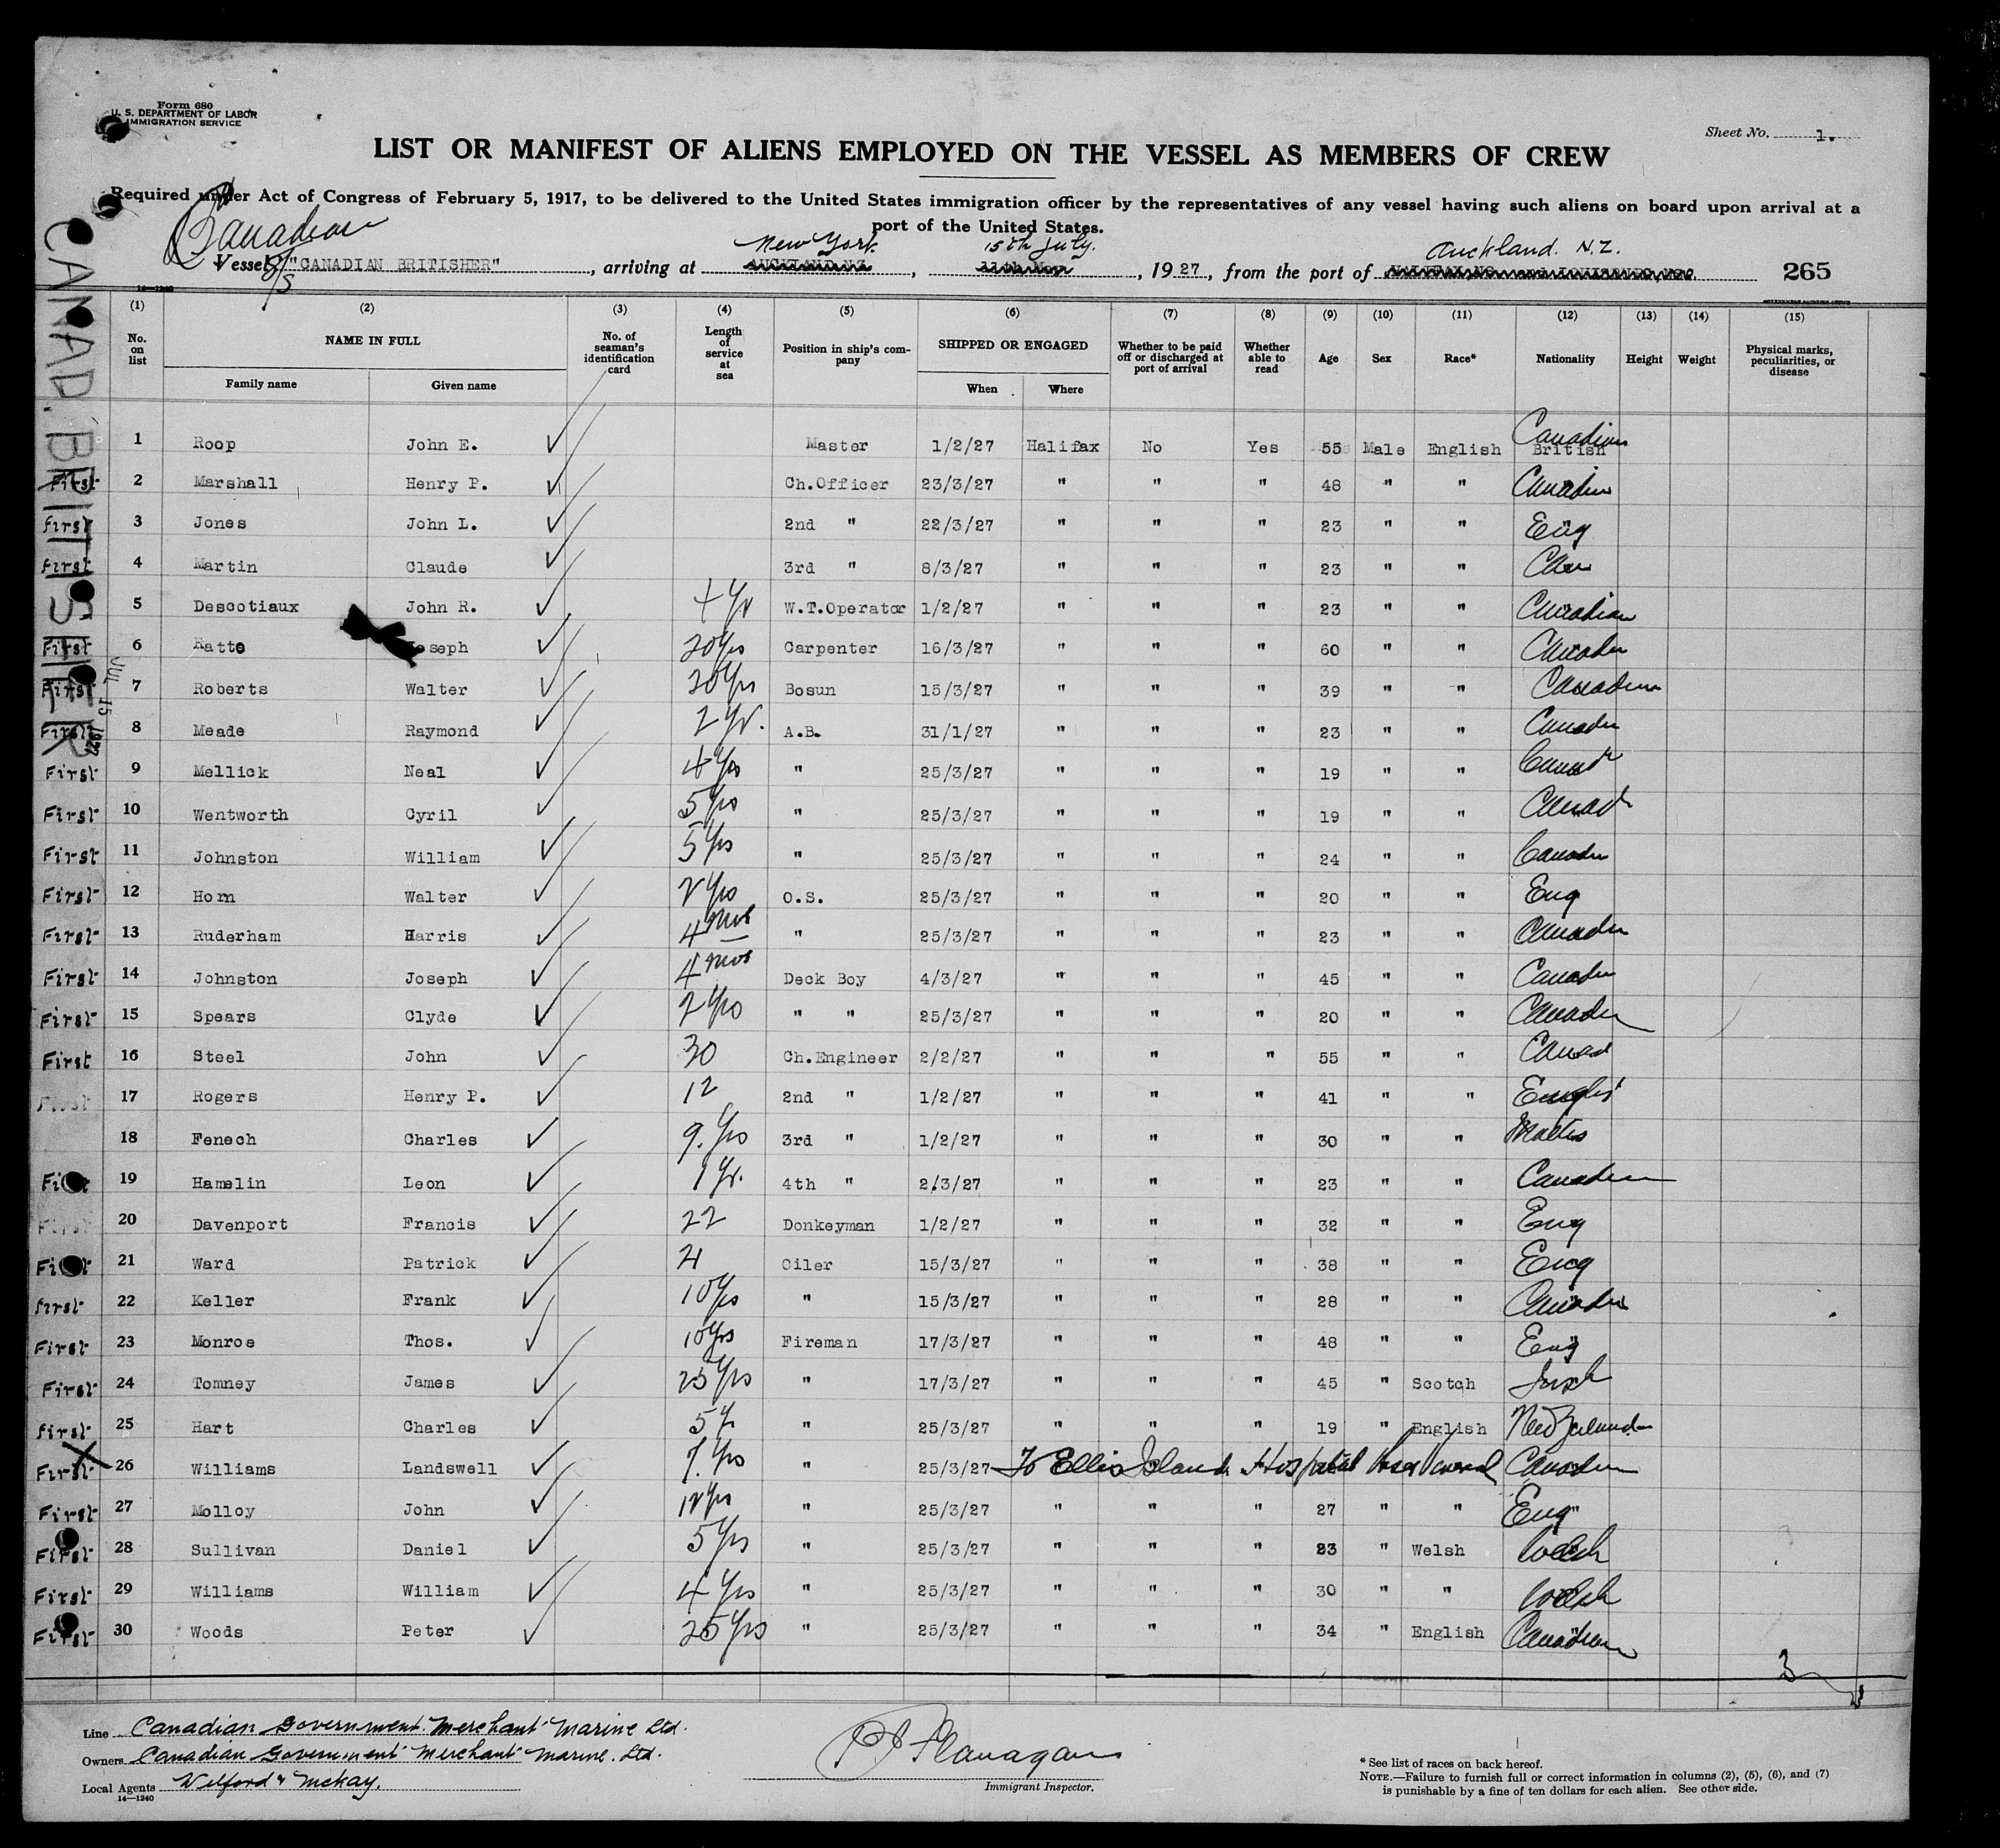 Form 680
U. S. DEPARTMENT OF LABOR
IMMIGRATION SERVICE
Sheet No. 1.
LIST OR MANIFEST OF ALIENS EMPLOYED ON THE VESSEL AS MEMBERS OF CREW
Required under Act of Congress of February 5, 1917, to be delivered to the United States immigration officer by the representatives of any vessel having such aliens on board upon arrival at a
port of the United States.
Canadian
New York 15th July. Auckland. N.Z.
Vessel S/S "CANADIAN BRITISHER", arriving at AUCKLAND NZ, 11th Nov, 1927, from the port of 265
14—1240
CANAD. BRITISHER
JUL 15 1927
(1) (2) (3) (4) (5) (6) (7) (8) (9) (10) (11) (12) (13) (14) (15)
No. on list NAME IN FULL No. of seaman's identification card Length of service at sea Position in ship's company SHIPPED OR ENGAGED Whether to be paid off or discharged at port of arrival Whether able to read Age Sex Race* Nationality Height Weight Physical marks, peculiarities, or disease
Family name Given name When Where
1 Roop John E. Master 1/2/27 Halifax No Yes 55 Male English British Canadian
First 2 Marshall Henry P. Ch.Officer 23/3/27 " " " 48 " " Canadian
First 3 Jones John L. 2nd " 22/3/27 " " " 23 " " Eng
First 4 Martin Claude 3rd " 8/3/27 " " " 23 " " Can
5 Descotiaux John R. 4 Yr W.T.Operator 1/2/27 " " " 23 " " Canadian
First 6 Ratte Joseph 20 Yrs Carpenter 16/3/27 " " " 60 " " Canadn
First 7 Roberts Walter 20 Yrs Bosun 15/3/27 " " " 39 " " Canadian
First 8 Meade Raymond 2 Yr. A.B. 31/1/27 " " " 23 " " Canadn
First 9 Mellick Neal 4 Yrs " 25/3/27 " " " 19 " " Canad
First 10 Wentworth Cyril 5 Yrs " 25/3/27 " " " 19 " " Canad
First 11 Johnston William 5 Yrs " 25/3/27 " " " 24 " " Canadn
First 12 Horn Walter 2 Yrs O.S. 25/3/27 " " " 20 " " Eng
First 13 Ruderham Harris 4 Mos " 25/3/27 " " " 23 " " Canadn
First 14 Johnston Joseph 4 Mos Deck Boy 4/3/27 " " " 45 " " Canadn
First 15 Spears Clyde 2 Yrs " " 25/3/27 " " " 20 " " Canadn
First 16 Steel John 30 Ch.Engineer 2/2/27 " " " 55 " " Canad
First 17 Rogers Henry P. 12 2nd " 1/2/27 " " " 41 " " English
18 Fenech Charles 9. Yrs 3rd " 1/2/27 " " " 30 " " Maltes
First 19 Hamelin Leon 1 Yr. 4th " 2/3/27 " " " 23 " " Canadian
First 20 Davenport Francis 22 Donkeyman 1/2/27 " " " 32 " " Eng
First 21 Ward Patrick Oiler 15/3/27 " " " 38 " " Eng
First 22 Keller Frank 10 Yrs " 15/3/27 " " " 28 " " Canadn
First 23 Monroe Thos. 10 Yrs Fireman 17/3/27 " " " 48 " " Eng
First 24 Tomney James 25 Yrs " 17/3/27 " " " 45 " Scotch Irish
First 25 Hart Charles 5 Y " 25/3/27 " " " 19 " English New Zealander
First 26 Williams Landswell 7. Yrs " 25/3/27 To Ellis Island Hospital Canadn
First 27 Molloy John 12 Yrs " 25/3/27 " " " 27 " " Eng
First 28 Sullivan Daniel 5 Yrs " 25/3/27 " " " 23 " Welsh Welsh
First 29 Williams William 4 Yrs " 25/3/27 " " " 30 " " Welsh
First 30 Woods Peter 25 Yrs " 25/3/27 " " " 34 " English Canadian
Line Canadian Government Merchant Marine Ltd.
Owners Canadian Government Merchant Marine. Ltd.
Local Agents Welford & McKay.
14—1240
P J Flanagan
Immigrant Inspector.
* See list of races on back hereof.
NOTE.—Failure to furnish full or correct information in columns (2), (5), (6), and (7)
is punishable by a fine of ten dollars for each alien. See other side.